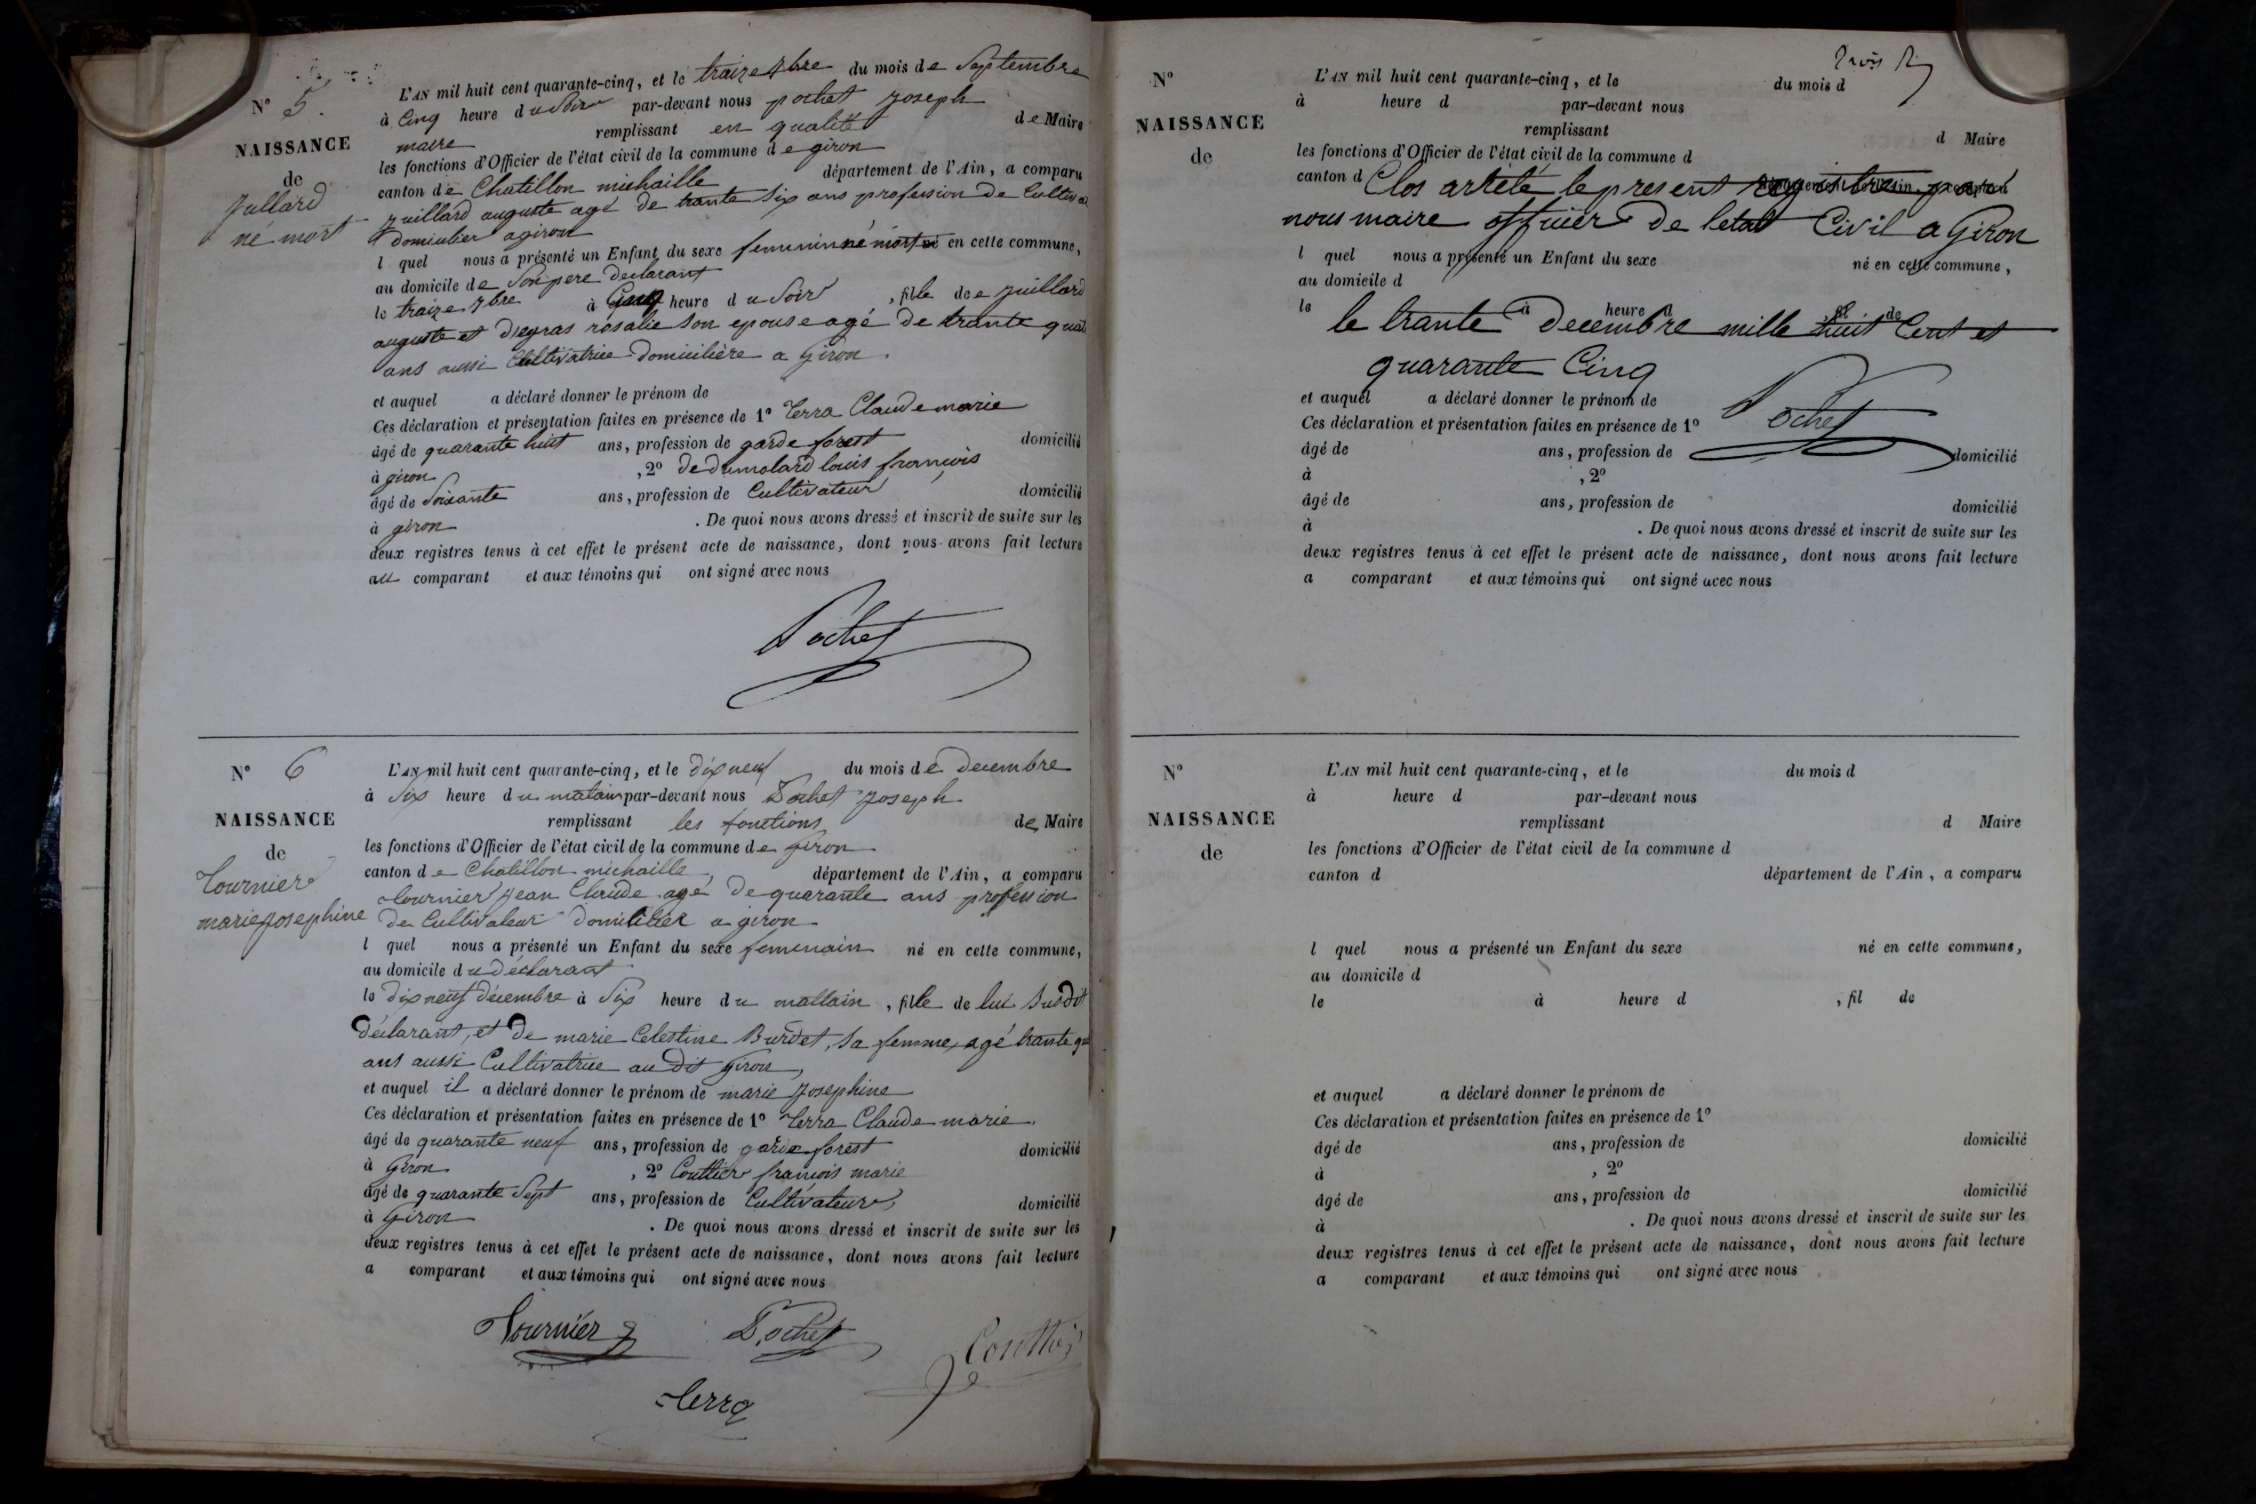 N° 5.
NAISSANCE
de
Jullard
né mort
L'AN mil huit cent quarante-cinq, et le traize 7bre du mois de Septembre
à Cinq heure du Soir par-devant nous pochet joseph
maire remplissant en qualité de Maire
les fonctions d'Officier de l'état civil de la commune de giron
canton de Chatillon michaille département de l'Ain, a comparu
juillard auguste agé de trante Six ans profession de Cultiva
domicilier a giron
l quel nous a présenté un Enfant du sexe feminin né mort né en cette commune,
au domicile de Son pere declarant
le traize 7bre à Cinq heure du Soir, fille de juillard
auguste et Degras rosalie Son epouse agé de trante quat
ans aussi Cultivatrice Domicilière a Giron.
et auquel a déclaré donner le prénom de
Ces déclaration et présentation faites en présence de 1° Terra Claude marie
âgé de quarante huit ans, profession de garde forest domicilié
à giron, 2° de Dumolard louis francois
âgé de Soixante ans, profession de Cultivateur domicilié
à giron. De quoi nous avons dressé et inscrit de suite sur les
deux registres tenus à cet effet le présent acte de naissance, dont nous avons fait lecture
au comparant et aux témoins qui ont signé avec nous
Pochet
N° 6
NAISSANCE
de
Tournier
marie josephine
L'AN mil huit cent quarante-cinq, et le dix neuf du mois de Decembre
à Six heure du matain par-devant nous Pochet joseph
remplissant les fonctions de Maire
les fonctions d'Officier de l'état civil de la commune de giron
canton de Chatillon michaille, département de l'Ain, a comparu
tournier jean Claude agé De quarante ans profession
de Cultivateur Domicilier a giron
l quel nous a présenté un Enfant du sexe feminain né en cette commune,
au domicile du déclarant
le Dix neuf décembre à Six heure du mattain, fille de lui Susdit
déclarant, et De marie Celestine Burdet, Sa femme, agé trante q
ans aussi Cultivatrice au dit Giron,
et auquel il a déclaré donner le prénom de marie josephine
Ces déclaration et présentation faites en présence de 1° Terra Claude marie.
âgé de quarante neuf ans, profession de garde forest domicilié
à Giron, 2° Couttier francois marie
âgé de quarante Sept ans, profession de Cultivateur domicilié
à Giron. De quoi nous avons dressé et inscrit de suite sur les
deux registres tenus à cet effet le présent acte de naissance, dont nous avons fait lecture
a comparant et aux témoins qui ont signé avec nous
Tournier Pochet Couttier
Terra
N°
NAISSANCE
de
trois
L'AN mil huit cent quarante-cinq, et le du mois d
à heure d par-devant nous
remplissant d Maire
les fonctions d'Officier de l'état civil de la commune d
canton d Clos arrêté le present registre par
nous maire officier De letat Civil a Giron
l quel nous a présenté un Enfant du sexe né en cette commune,
au domicile d
le à heure d fil de
le trante Decembre mille huit Cent et
quarante Cinq
et auquel a déclaré donner le prénom de
Ces déclaration et présentation faites en présence de 1° Pochet
âgé de ans, profession de domicilié
à , 2°
âgé de ans, profession de domicilié
à . De quoi nous avons dressé et inscrit de suite sur les
deux registres tenus à cet effet le présent acte de naissance, dont nous avons fait lecture
a comparant et aux témoins qui ont signé avec nous
N°
NAISSANCE
de
L'AN mil huit cent quarante-cinq, et le du mois d
à heure d par-devant nous
remplissant d Maire
les fonctions d'Officier de l'état civil de la commune d
canton d département de l'Ain, a comparu
l quel nous a présenté un Enfant du sexe né en cette commune,
au domicile d
le à heure d , fil de
et auquel a déclaré donner le prénom de
Ces déclaration et présentation faites en présence de 1°
âgé de ans, profession de domicilié
à , 2°
âgé de ans, profession de domicilié
à . De quoi nous avons dressé et inscrit de suite sur les
deux registres tenus à cet effet le présent acte de naissance, dont nous avons fait lecture
a comparant et aux témoins qui ont signé avec nous